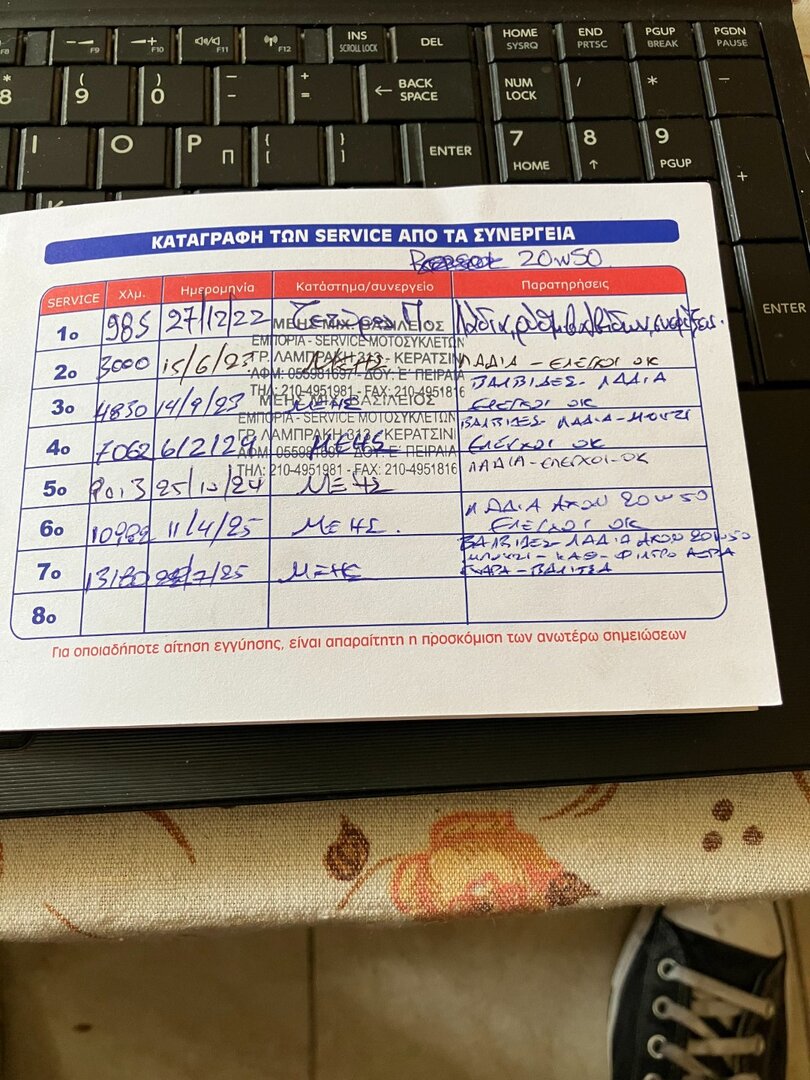 F8 F9 F10 F11 F12 INS SCROLL LOCK DEL HOME SYSRQ END PRTSC PGUP BREAK PGDN PAUSE
* 8 ( 9 ) 0 _ - + = ← BACK SPACE NUM LOCK / * -
I O P Π { [ } ] ENTER 7 HOME 8 ↑ 9 PGUP +
ENTER
ΚΑΤΑΓΡΑΦΗ ΤΩΝ SERVICE ΑΠΟ ΤΑ ΣΥΝΕΡΓΕΙΑ
20W50
SERVICE Χλμ. Ημερομηνία Κατάστημα/συνεργείο Παρατηρήσεις
1ο 985 27/12/22
ΜΕΗΣ ΜΙΧ. ΒΑΣΙΛΕΙΟΣ
ΕΜΠΟΡΙΑ - SERVICE ΜΟΤΟΣΥΚΛΕΤΩΝ
2ο 3000 15/6/23 ΜΕΗΣ ΛΑΔΙΑ - ΕΛΕΓΧΟΙ ΟΚ
ΓΡ. ΛΑΜΠΡΑΚΗ 313 - ΚΕΡΑΤΣΙΝΙ
ΑΦΜ: 055981697 - ΔΟΥ: Ε' ΠΕΙΡΑΙΑ
ΤΗΛ: 210-4951981 - FAX: 210-4951816
3ο 4830 14/9/23 ΜΕΗΣ ΒΑΛΒΙΔΕΣ - ΛΑΔΙΑ
ΕΛΕΓΧΟΙ ΟΚ
ΜΕΗΣ ΜΙΧ. ΒΑΣΙΛΕΙΟΣ
ΕΜΠΟΡΙΑ - SERVICE ΜΟΤΟΣΥΚΛΕΤΩΝ
ΓΡ. ΛΑΜΠΡΑΚΗ 313 - ΚΕΡΑΤΣΙΝΙ
4ο 7062 6/2/24 ΜΕΗΣ ΒΑΛΒΙΔΕΣ - ΛΑΔΙΑ - ΜΠΟΥΖΙ
ΕΛΕΓΧΟΙ ΟΚ
ΑΦΜ: 055981697 - ΔΟΥ: Ε' ΠΕΙΡΑΙΑ
ΤΗΛ: 210-4951981 - FAX: 210-4951816
5ο 25/10/24 ΜΕΗΣ ΛΑΔΙΑ - ΕΛΕΓΧΟΙ - ΟΚ
6ο 10982 11/4/25 ΜΕΗΣ. ΛΑΔΙΑ 20W50
ΕΛΕΓΧΟΙ ΟΚ
7ο 13180 /7/25 ΜΕΗΣ ΒΑΛΒΙΔΕΣ - ΛΑΔΙΑ 20W50
ΜΠΟΥΖΙ - ΚΑΘ - ΦΙΛΤΡΟ ΑΕΡΑ
ΣΧΑΡΑ - ΒΑΛΙΤΣΑ
8ο
Για οποιαδήποτε αίτηση εγγύησης, είναι απαραίτητη η προσκόμιση των ανωτέρω σημειώσεων